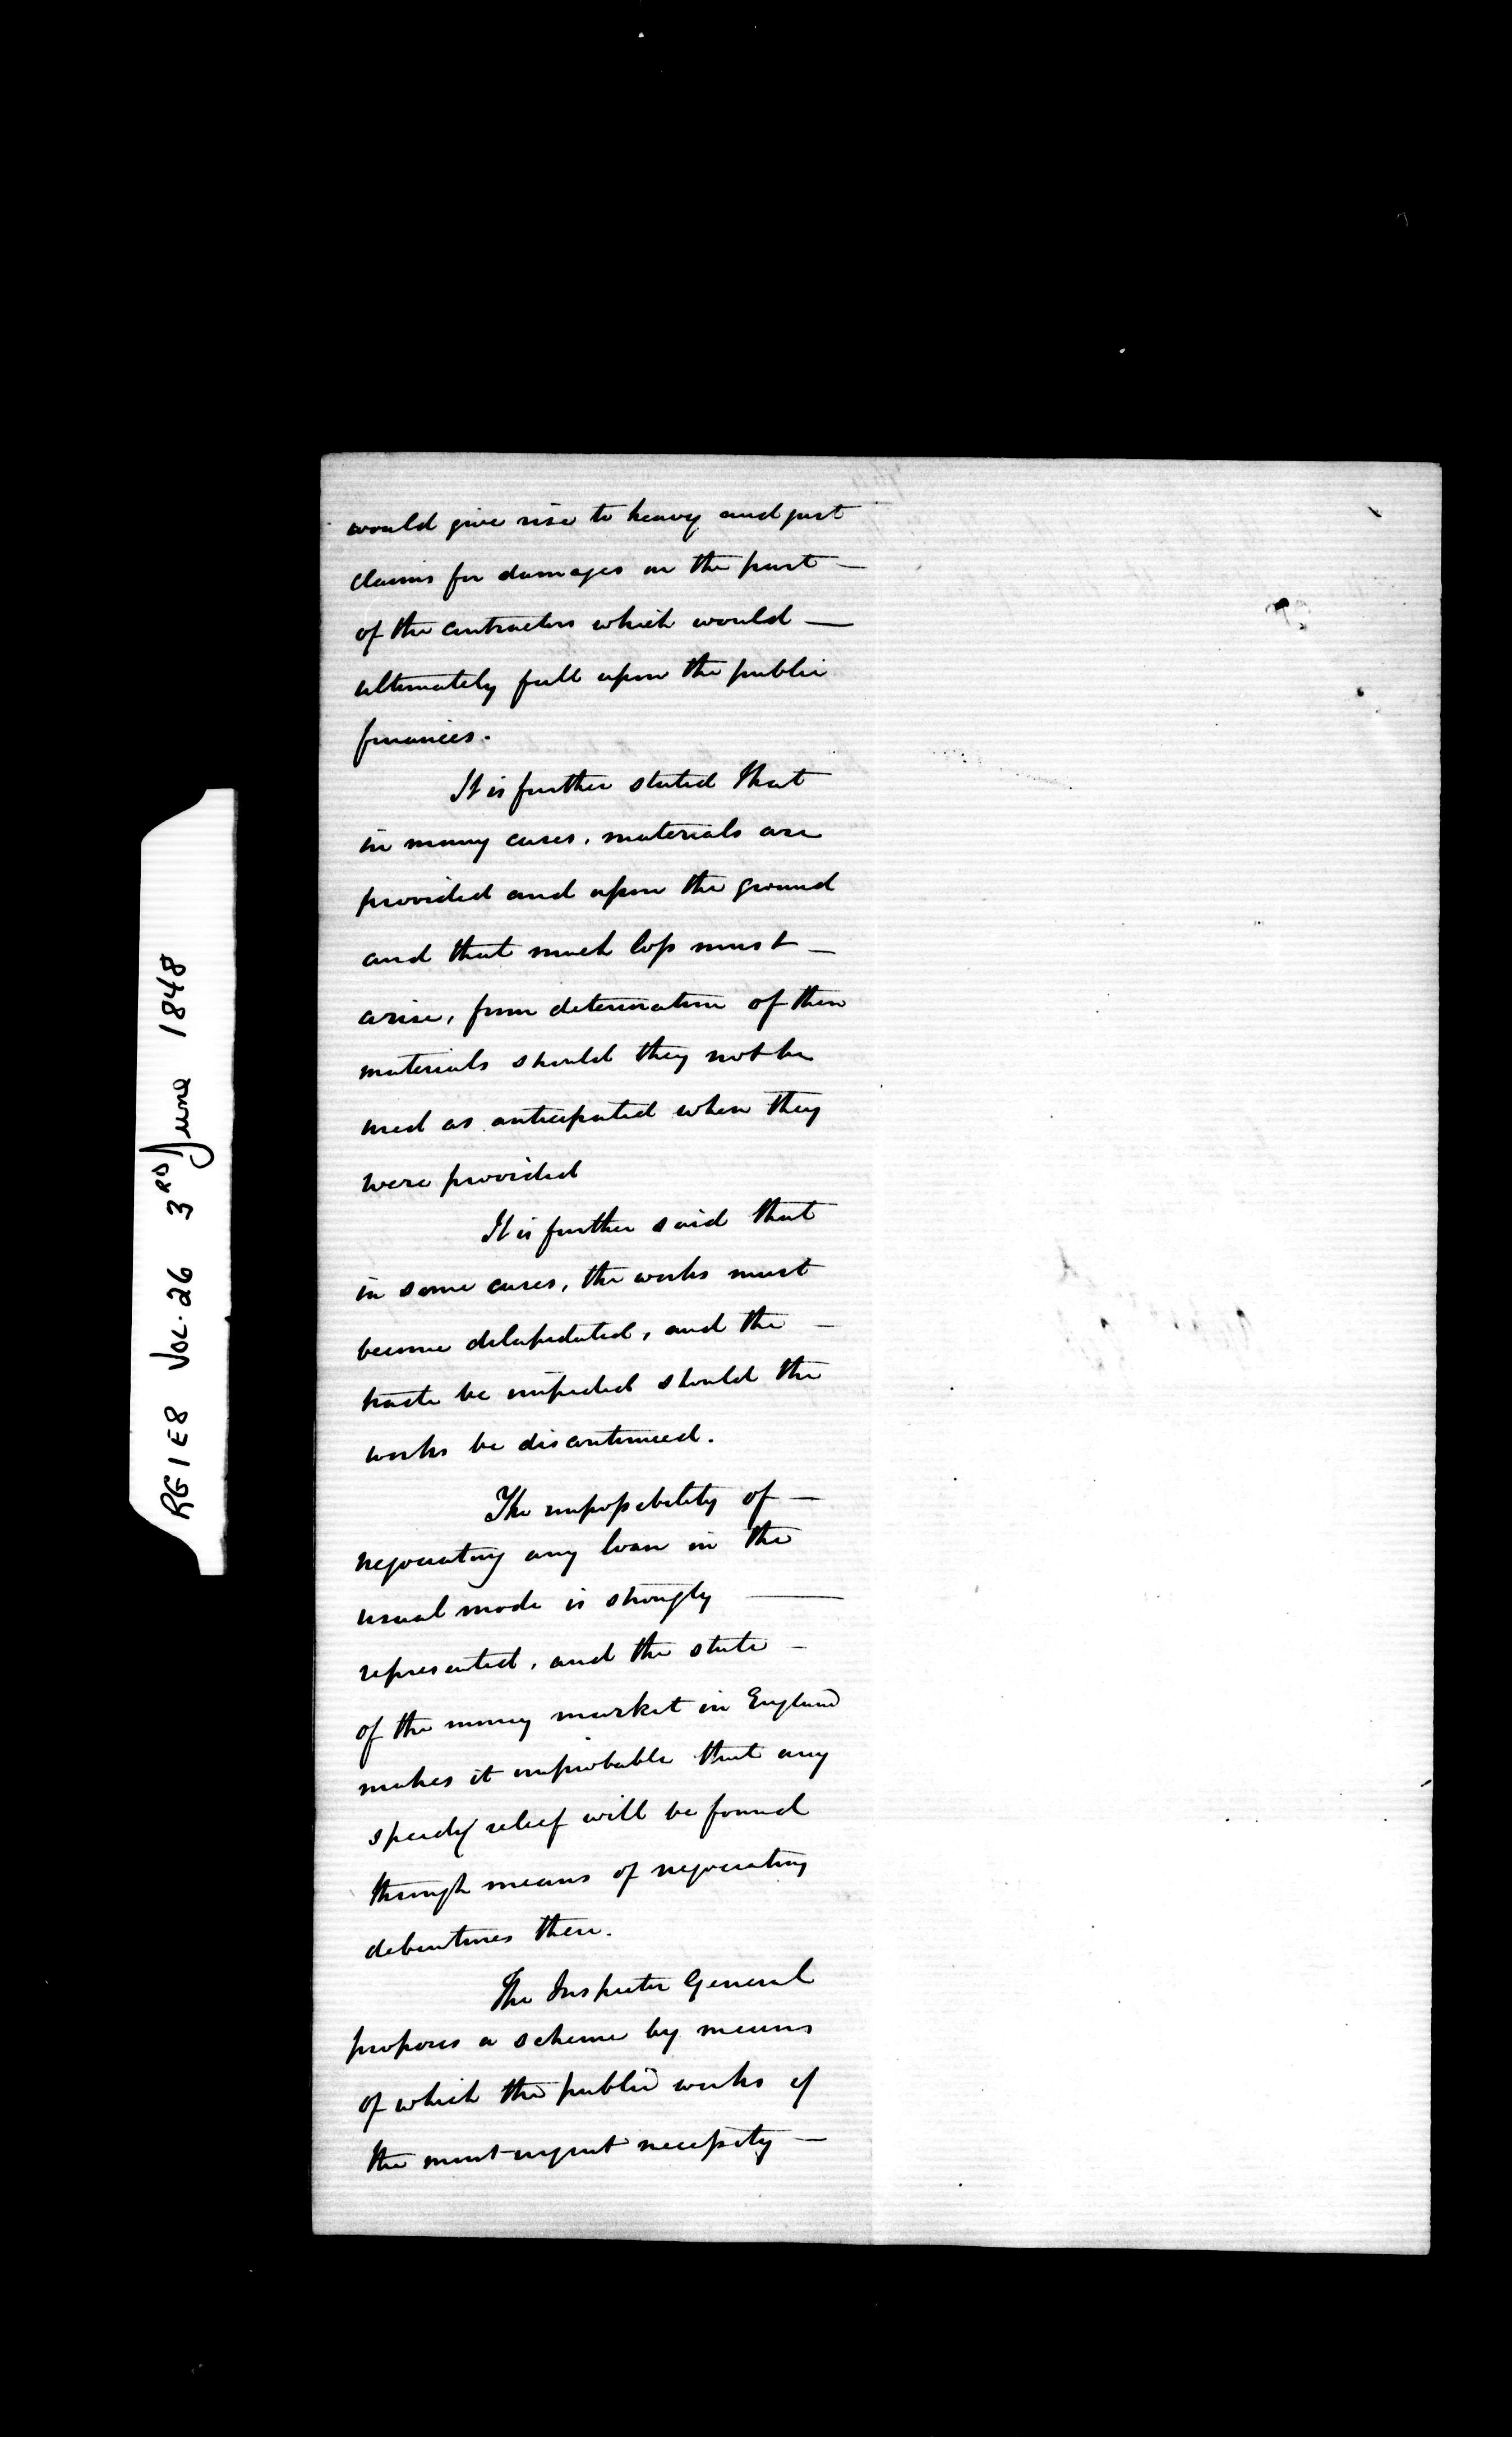 would give rise to heavy and just
claims for damages on the part —
of the contractors which would —
ultimately fall upon the public
finances.
It is further stated that
in many cases, materials are
provided and upon the ground
and that much loss must —
arise, from deterioration of them
materials should they not be
used as anticipated when they
were provided
It is further said that
in some cases, the works must
become delapidated, and the —
trade be impeded should the
works be discontinued.
The impossibility of —
negociating any loan in the
usual mode is strongly —
represented, and the state —
of the money market in England
makes it improbable that any
speedy relief will be found
through means of negociating
debentures there.
The Inspector General
proposes a scheme by means
of which the public works of
the most urgent necessity —
RG1E8 VOL.26 3RD June 1848